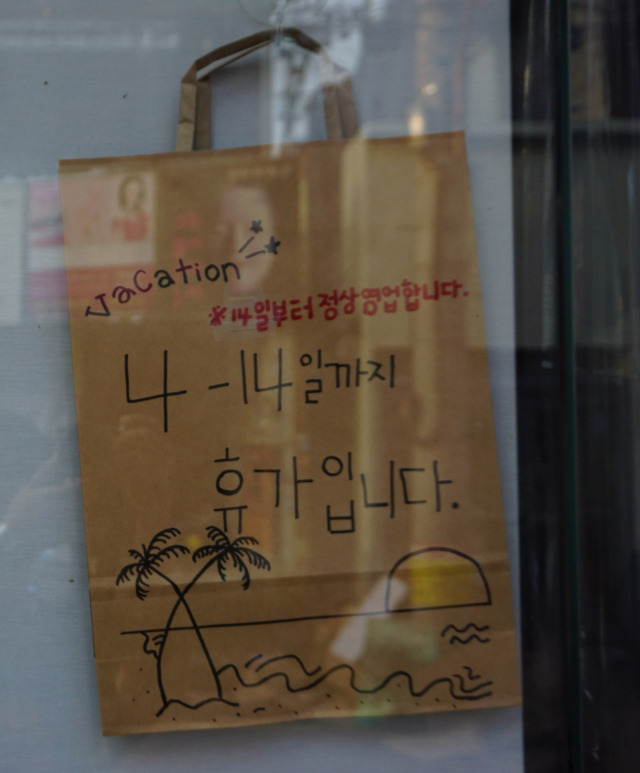 Vacation
※14일부터 정상영업합니다.
4-14일까지
휴가입니다.